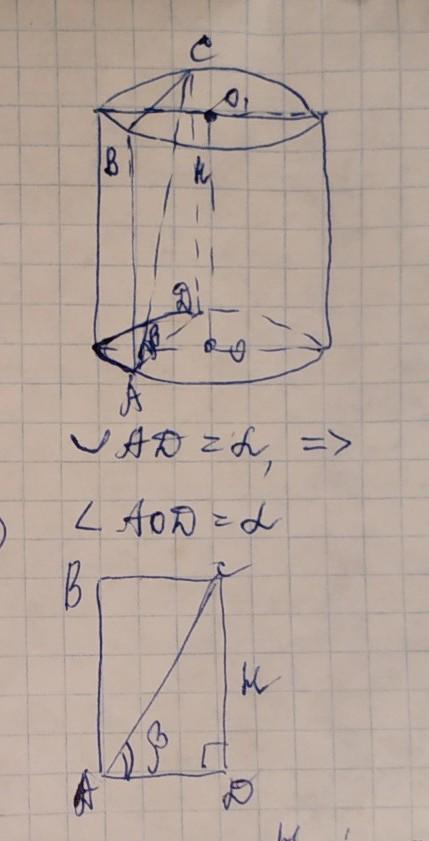 C
O₁
B
H
D
β
O
A
◡ AD = α, =>
) ∠ AOD = α
B C
H
β
A D